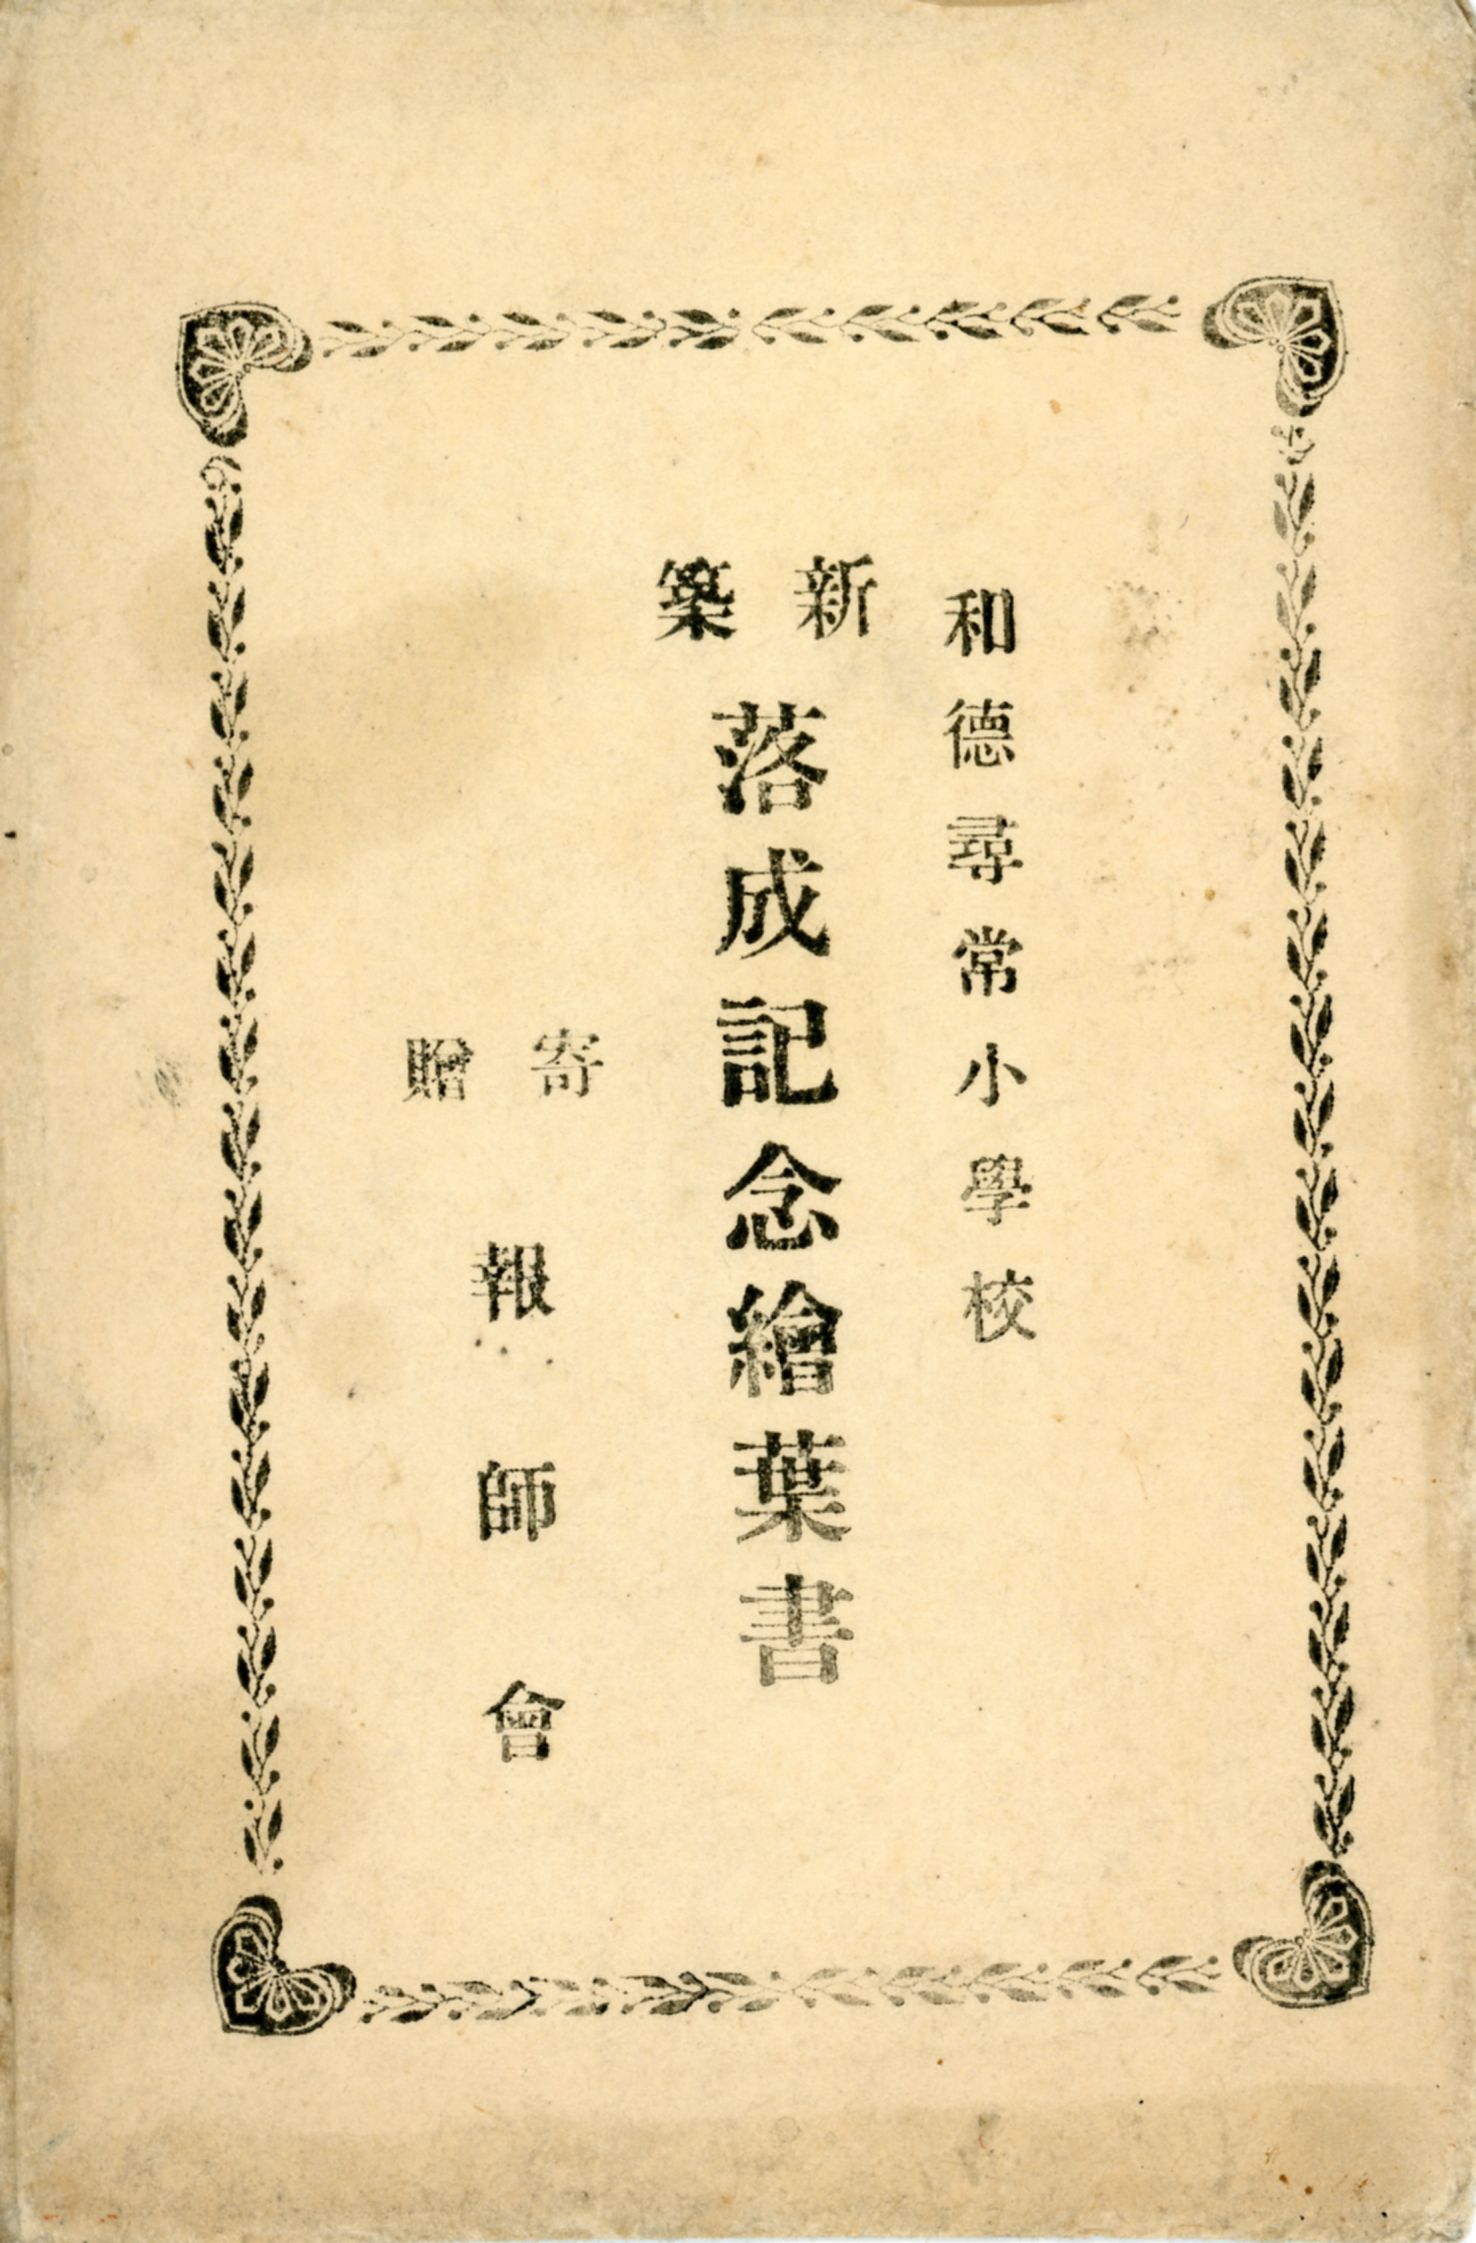 和德尋常小學校
新築
落成記念繪葉書
寄贈
報師會